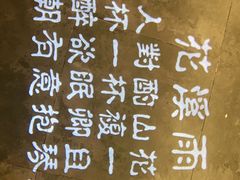 花溪雨
人對酌山花
杯一杯復一
醉欲眠卿且
朝有意抱琴